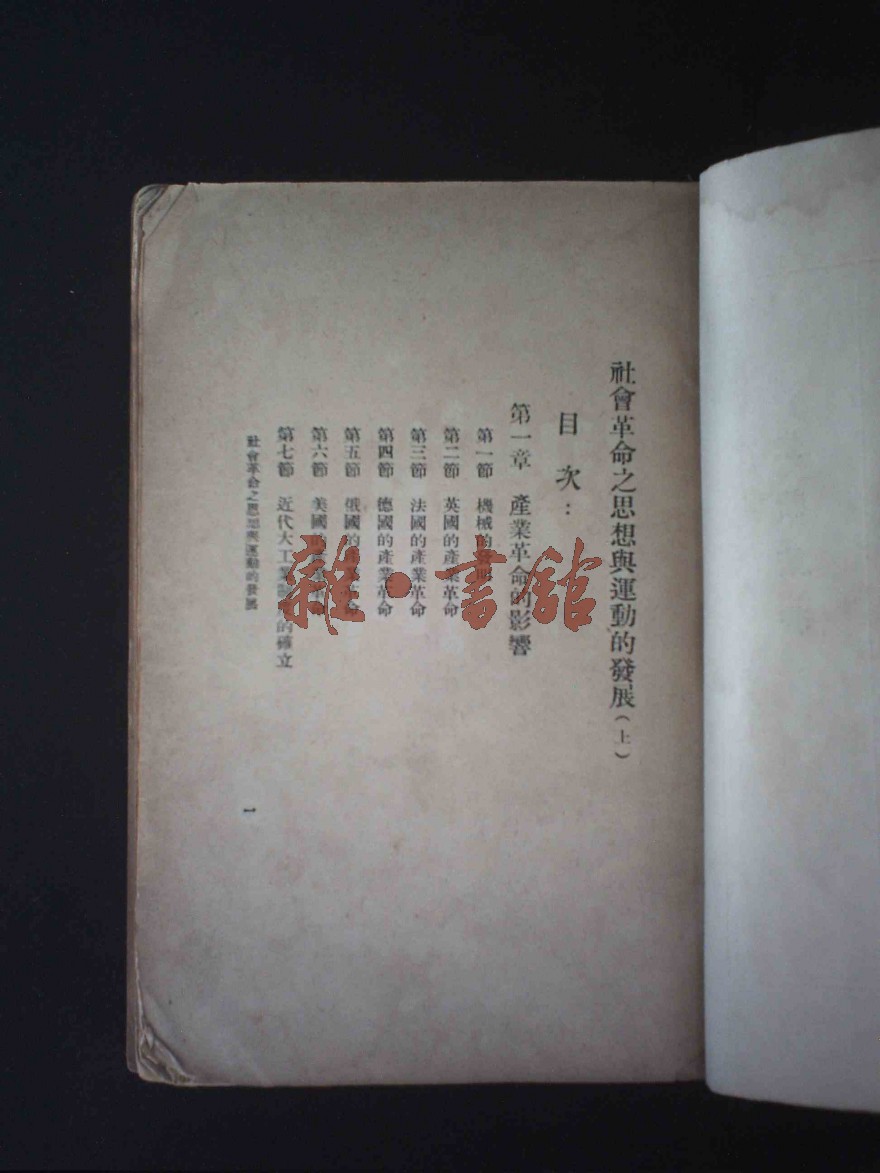 社會革命之思想與運動的發展（上）
目次：
第一章 產業革命的影響
第一節 機械的發明
第二節 英國的產業革命
第三節 法國的產業革命
第四節 德國的產業革命
第五節 俄國的產業革命
第六節 美國的產業革命
第七節 近代大工業制度的確立
社會革命之思想與運動的發展
一
雜·書館